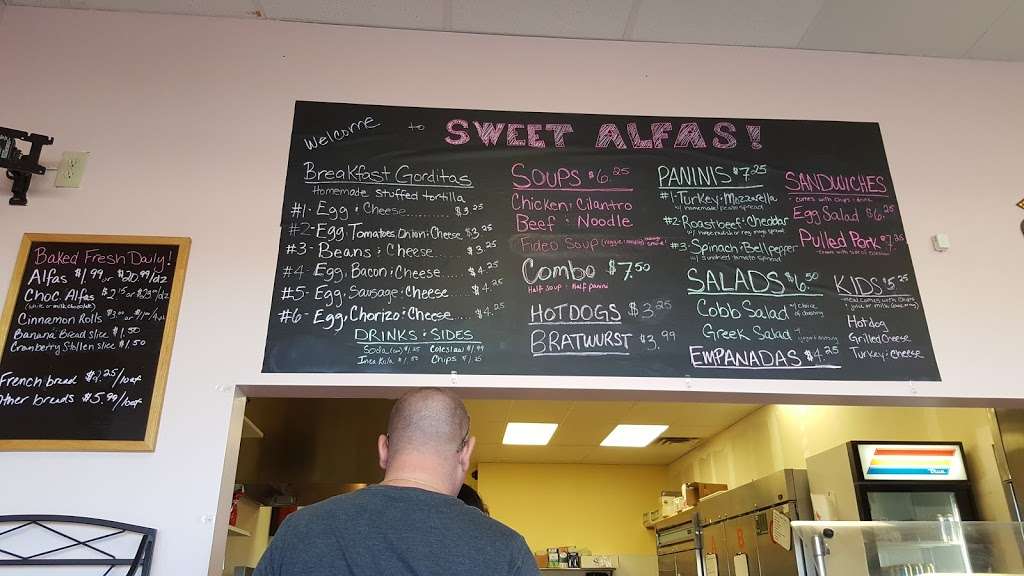 Welcome to SWEET ALFAS!
Breakfast Gorditas
Homemade stuffed tortilla
#1- Egg & Cheese........ $3.25
#2- Egg, Tomatoes, Onion & Cheese $3.25
#3- Beans & Cheese...... $3.25
#4- Egg, Bacon & Cheese..... $4.25
#5- Egg, Sausage & Cheese.... $4.25
#6- Egg, Chorizo & Cheese.... $4.25
DRINKS & SIDES
Soda (can) $1.25 Coleslaw $1.99
Inca Kola $1.50 Chips $1.25
SOUPS $6.25
Chicken & Cilantro
Beef & Noodle
Fideo Soup
Combo $7.50
Half Soup & Half panini
HOTDOGS $3.25
BRATWURST $3.99
PANINIS $7.25
#1- Turkey & Mozzarella
w/ homemade pesto spread
#2- Roastbeef & Cheddar
#3- Spinach & Bellpepper
w/ sundried tomato spread
SALADS $6.50
Cobb Salad w/ choice of dressing
Greek Salad
EMPANADAS $4.25
SANDWICHES
comes with chips & drink
Egg Salad $6.25
Pulled Pork $7.35
KIDS $5.25
meal comes with chips
Hotdog
Grilled Cheese
Turkey & Cheese
Baked Fresh Daily!
Alfas $1.99 or $20.99/dz
Choc Alfas $2.15 or $23.99/dz
(white or milk chocolate)
Cinnamon Rolls
Banana Bread slice $1.50
Cranberry Stollen slice $1.50
French bread $2.25/loaf
Other breads $5.99/loaf